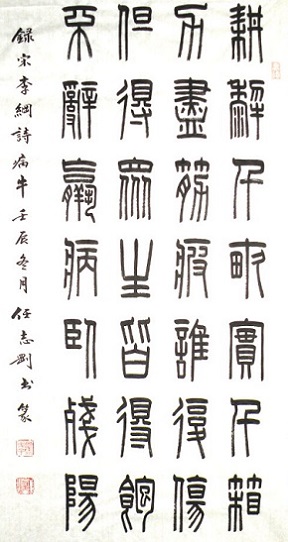 耕犂千畝實千箱
力盡筋疲誰復傷
但得眾生皆得飽
不辭羸病臥殘陽
錄宋李綱詩病牛壬辰冬月任志剛書篆